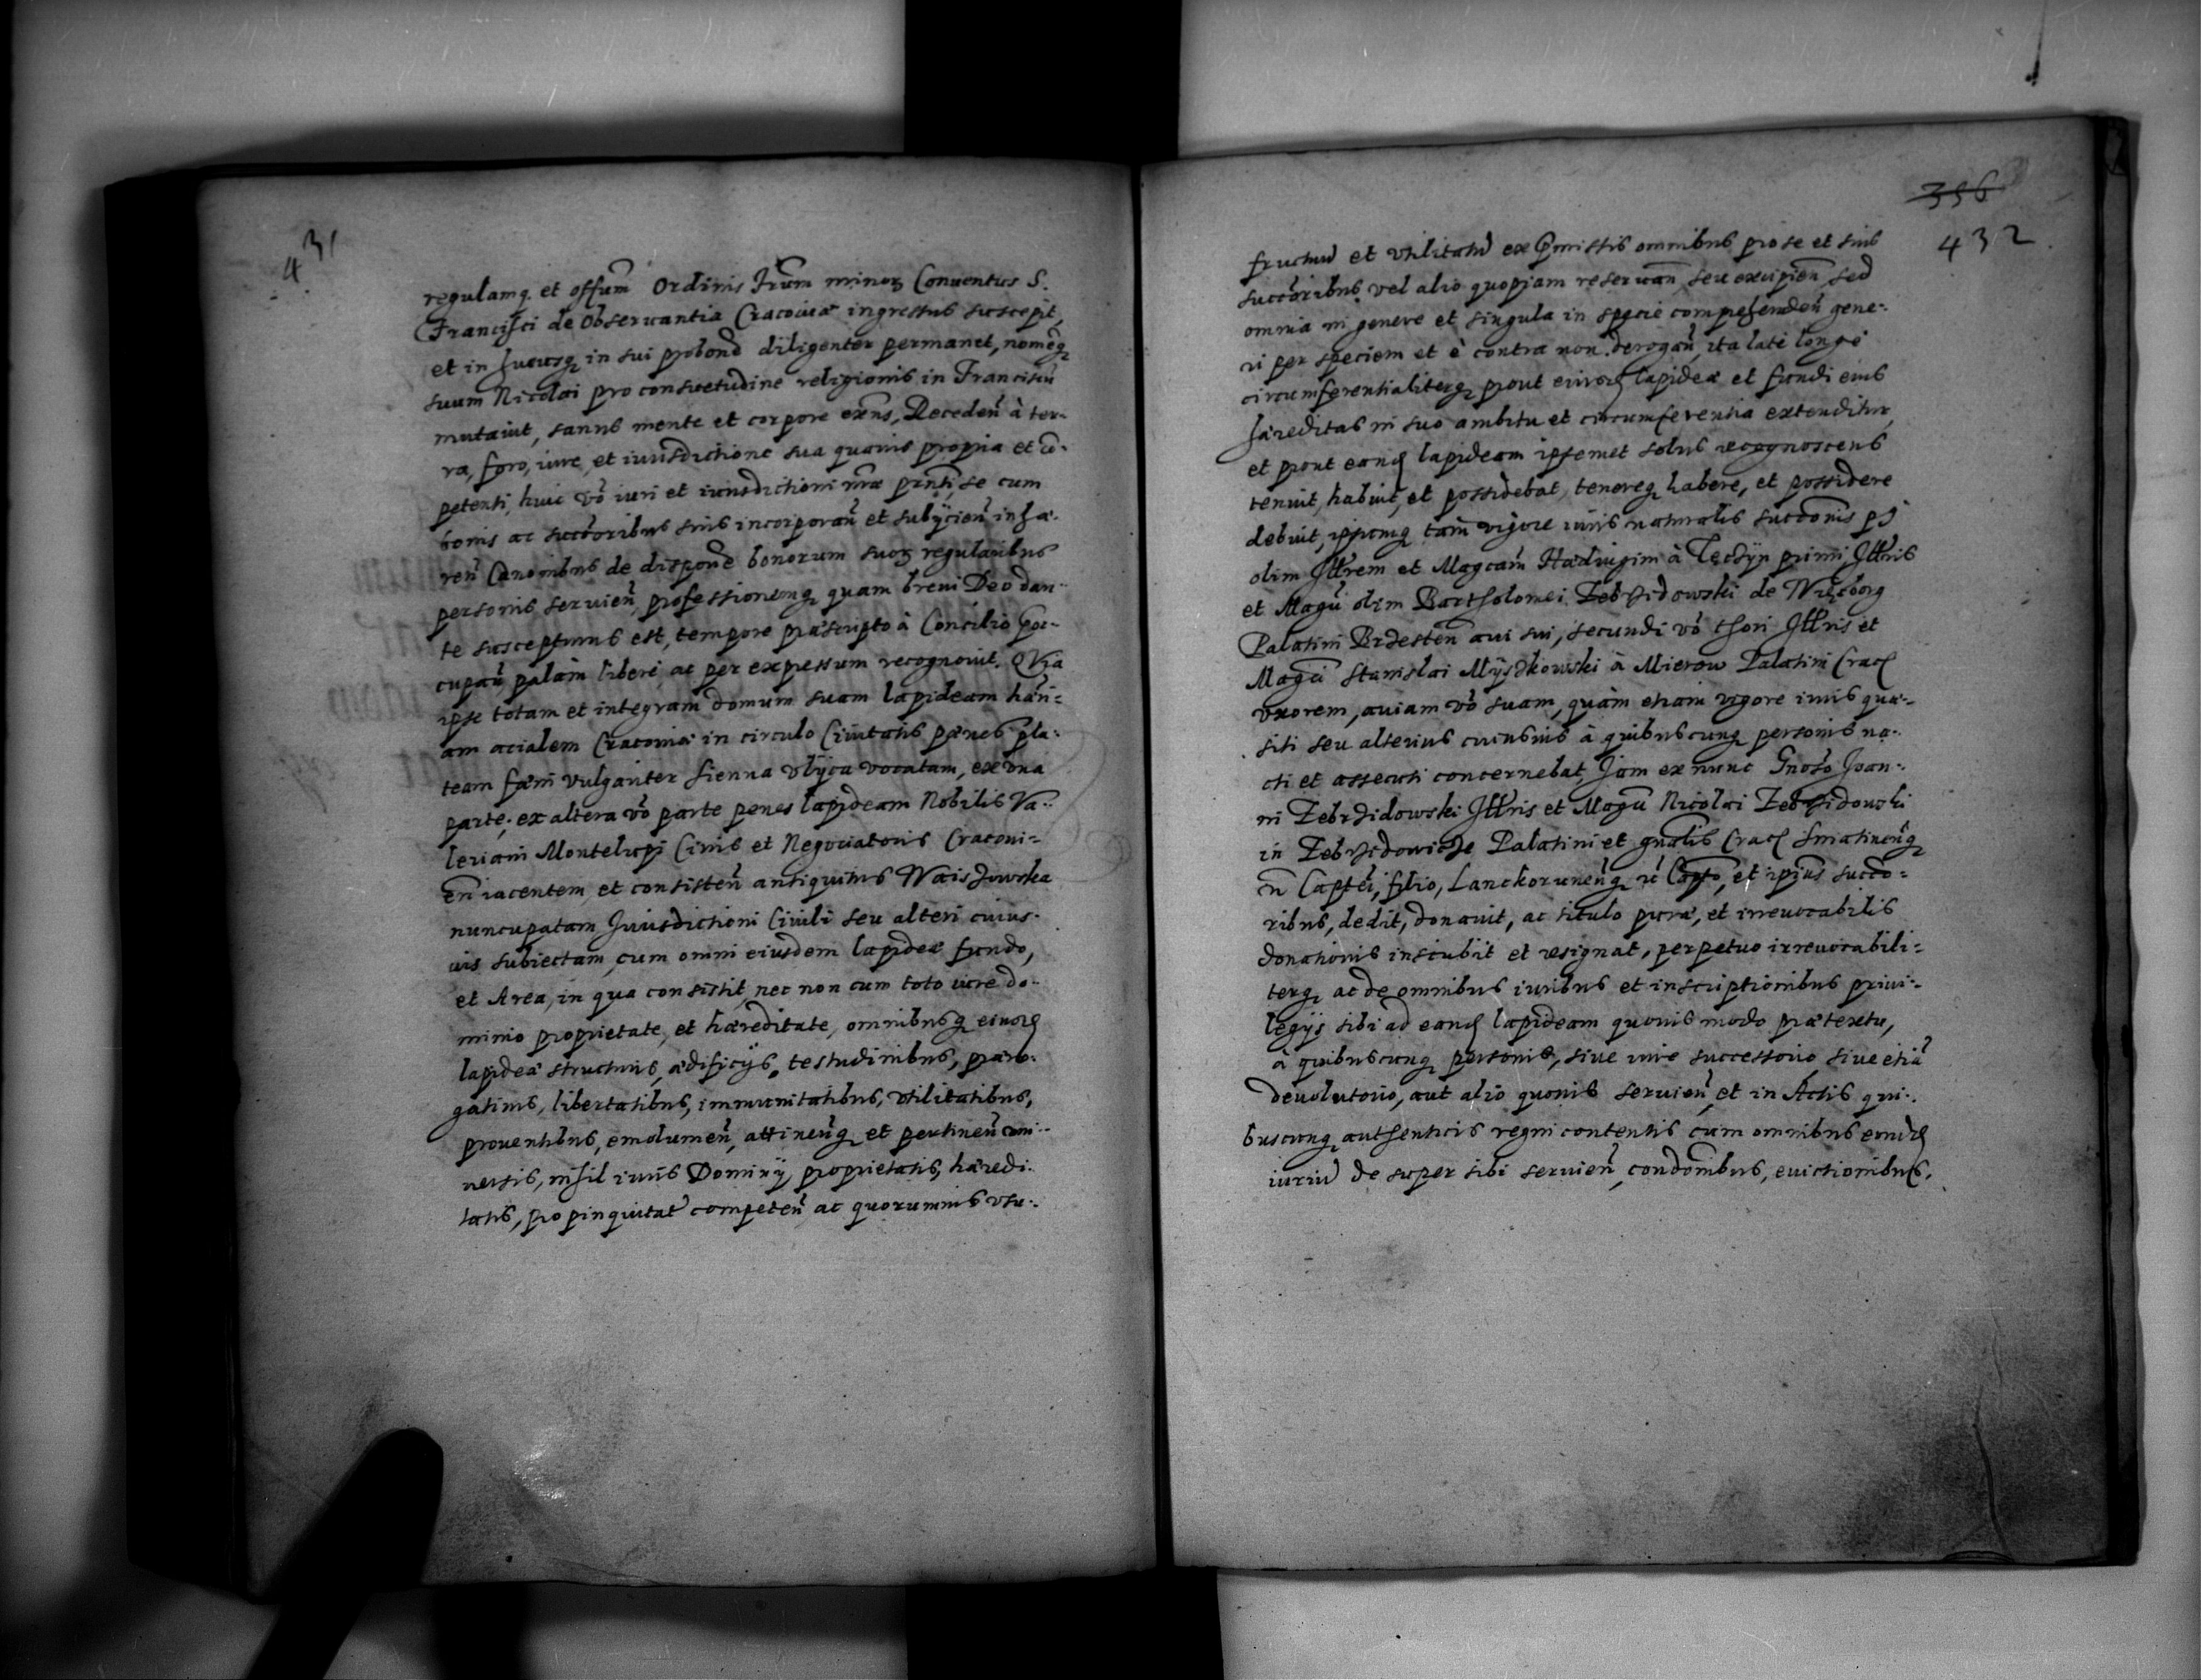 431
regulamq. et offum̃ Ordinis Frum̃ minorꝫ Conuentus S.
Francisci de Obseruantia Cracouiæ ingressus suscepit,
et in hucusqꝫ in sui probone diligenter permanet, nomeqꝫ
suum Nicolai pro consuetudine religionis in Franciscũ
mutauit, sanus mente et corpore exñs, Recedeñ à ter-
ra, foro, iure, et iurisdictione sua quauis propria et cõ-
petenti, huic vo iuri et iurisdictioni nrãe pnti, se cum
bonis ac succoribus suis incorporañ et subÿcieñ inhæ-
reñ Canonibus de dispone bonorum suorꝫ regularibus
personis seruieñ, professionemqꝫ quam breui Deo dan-
te suscepturus est, tempore præscripto à Concilio
cupañ, palàm liberè, ac per expressum recognouit. QVia
ipse totam et integram domum suam lapideam hañi-
am acialem Cracouiæ in circulo Ciuitatis pænes pla-
team fæni vulgariter Sienna vlÿca vocatam, ex vna
parte, ex altera vo parte penes lapideam Nobilis Va-
leriani Montelupi Ciuis et Negociatoris Cracoui-
eñ iacentem, et consisteñ antiquitus
nuncupatam Jurisdictioni Ciuili seu alteri cuius-
uis subiectam, cum omni eiusdem lapideæ fundo,
et Area, in qua consistit, nec non cum toto iure do-
minio proprietate, et hæreditate, omnibusqꝫ eiusd
lapideæ structuris, ædificÿs, testudinibus, præro-
gatiuis, libertatibus, immunitatibus, vtilitatibus,
prouentibus, emolumeñ, attineñqꝫ et pertineñ vni-
uersis, nihil iuris Dominÿ, proprietatis, hæredi-
tatis, propinquitat competeñ ac quorumuis vsu-
356
432
fructuũ et vtilitatũ ex pmissis omnibus pro se et suis
succoribus, vel alio quopiam reseruañ, seu excipieñ, sed
omnia in genere et singula in specie comprehendeñ gene-
ri per speciem et è contra non derogañ, ita latè longè
circumferentialiterqꝫ prout eiusd lapideæ et fundi eius
hæreditas in suo ambitu et circumferentia extenditur,
et prout eand lapideam ipsemet solus recognoscens
tenuit, habuit, et possidebat, tenereqꝫ habere, et possidere
debuit, ipsumqꝫ tam vigore iuris naturalis succonis p
olim Illrem et Magcam Hæduigim à Tęczÿn primi, Illris
et Magci olim Bartholomei Zebrzidowski de Więcborg
Palatini Brzesteñ aui sui, secundi vo thori Illris et
Magci Stanislai Mÿszkowski à Mierow Palatini Crac
vxorem, auiam vo suam, quàm etiam vigore iuris quæ-
siti seu alterius cuiusuis à quibuscunqꝫ personis na-
cti et assecuti concernebat, Jam ex nunc Gnoso Joan-
ni Zebrzidowski Illris et Magci Nicolai Zebrzidowski
in Zebrzidowicze Palatini et gnalis Crac Sniatineñqꝫ
Captei, filio, Lanckoruneñqꝫ Capto, et ipsius succo-
ribus, dedit, donauit, ac titulo puræ, et irreuocabilis
donationis inscribit et resignat, perpetuo irreuocabili-
terqꝫ ac de omnibus iuribus et inscriptionibus priui-
legÿs sibi ad eand lapideam quouis modo prætextu,
à quibuscunqꝫ personis, siue iure successorio, siue etiã
deuolutorio, aut alio quouis seruieñ, et in Actis qui-
buscunqꝫ authenticis regni contentis cum omnibus eorund
iuriũ de super sibi seruieñ, condonibus, euictionibus,